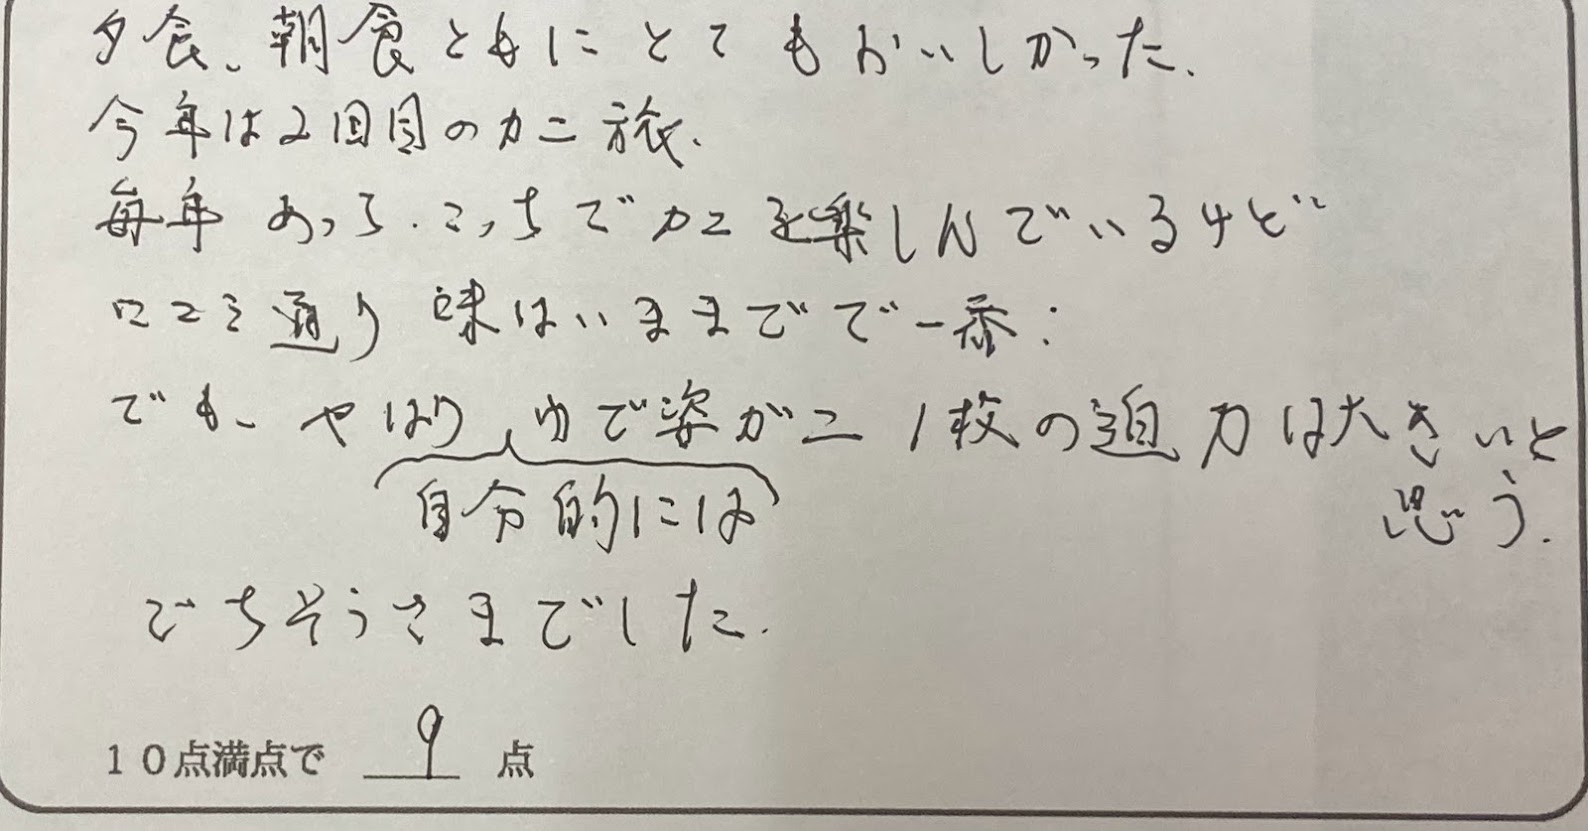 夕食、朝食ともにとてもおいしかった.
今年は2回目のカニ旅.
毎年あっち.こっちでカニを楽しんでいるけど
口コミ通り 味はいままでで一番:
でも、やはり、ゆで姿がニ 1枚の迫力は大きいと
思う.
自分的には
ごちそうさまでした.
10点満点で 9 点